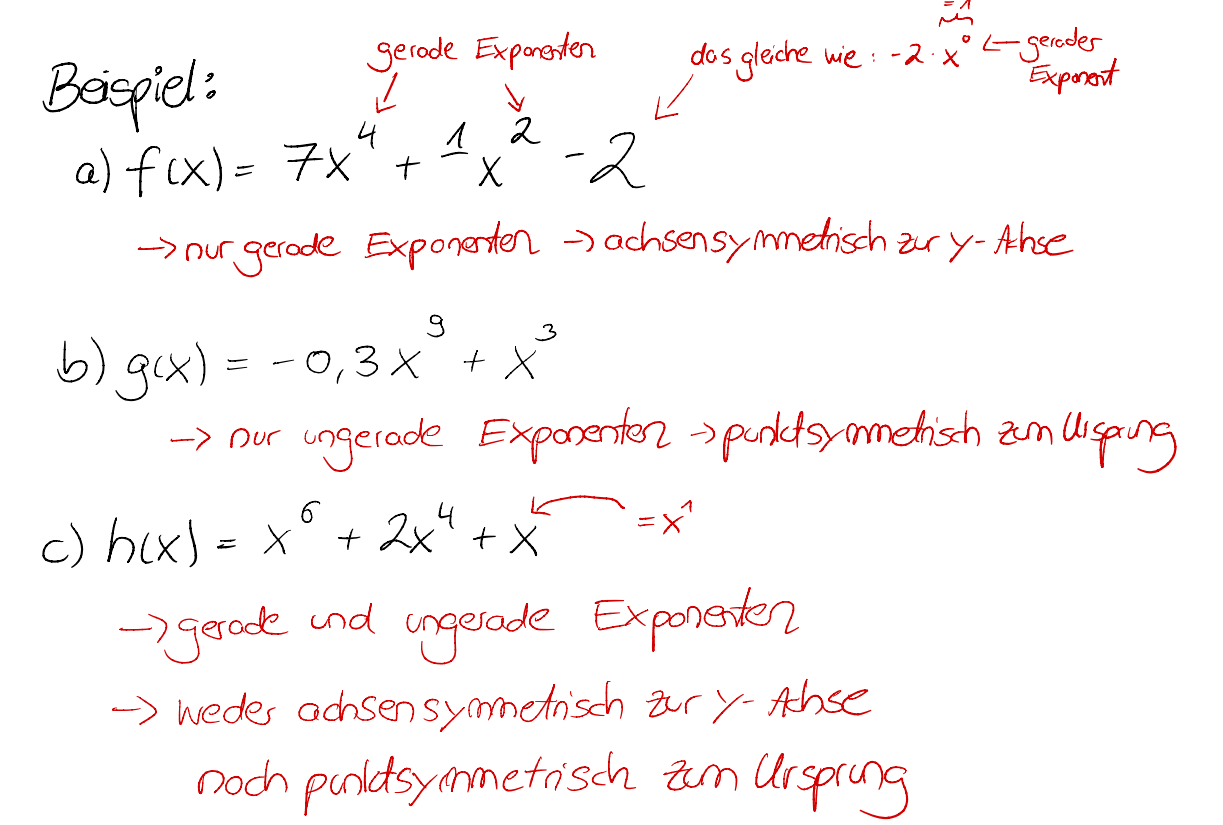 = 1
gerade Exponenten
das gleiche wie: -2 · x⁰ ← gerader Exponent
Beispiel:
a) f(x) = 7x⁴ + 1 x² - 2
→ nur gerade Exponenten → achsensymmetrisch zur y-Achse
b) g(x) = -0,3x⁹ + x³
→ nur ungerade Exponenten → punktsymmetrisch zum Ursprung
c) h(x) = x⁶ + 2x⁴ + x = x¹
→ gerade und ungerade Exponenten
→ weder achsensymmetrisch zur y-Achse
noch punktsymmetrisch zum Ursprung